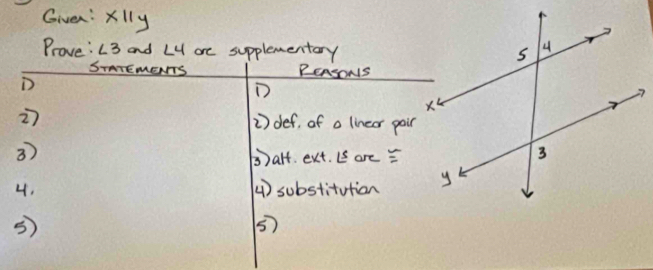 Given: x || y
Prove: ∠3 and ∠4 are supplementary
STATEMENTS REASONS
1) 1)
2) 2) def. of a linear pair
3) 3) alt. ext. ∠s are ≅
4. 4) substitution
5) 5)
5 4
x
3
y